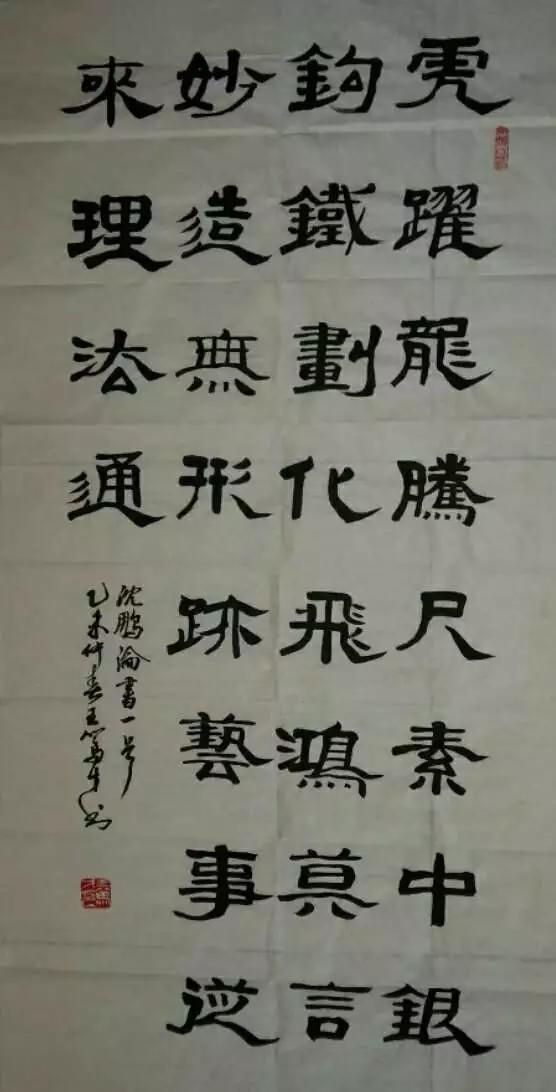 虎躍龍騰尺素中銀
鉤鐵劃化飛鴻莫言
妙造無形跡藝事從
來理法通
沈鵬論書一首
乙未仲春王